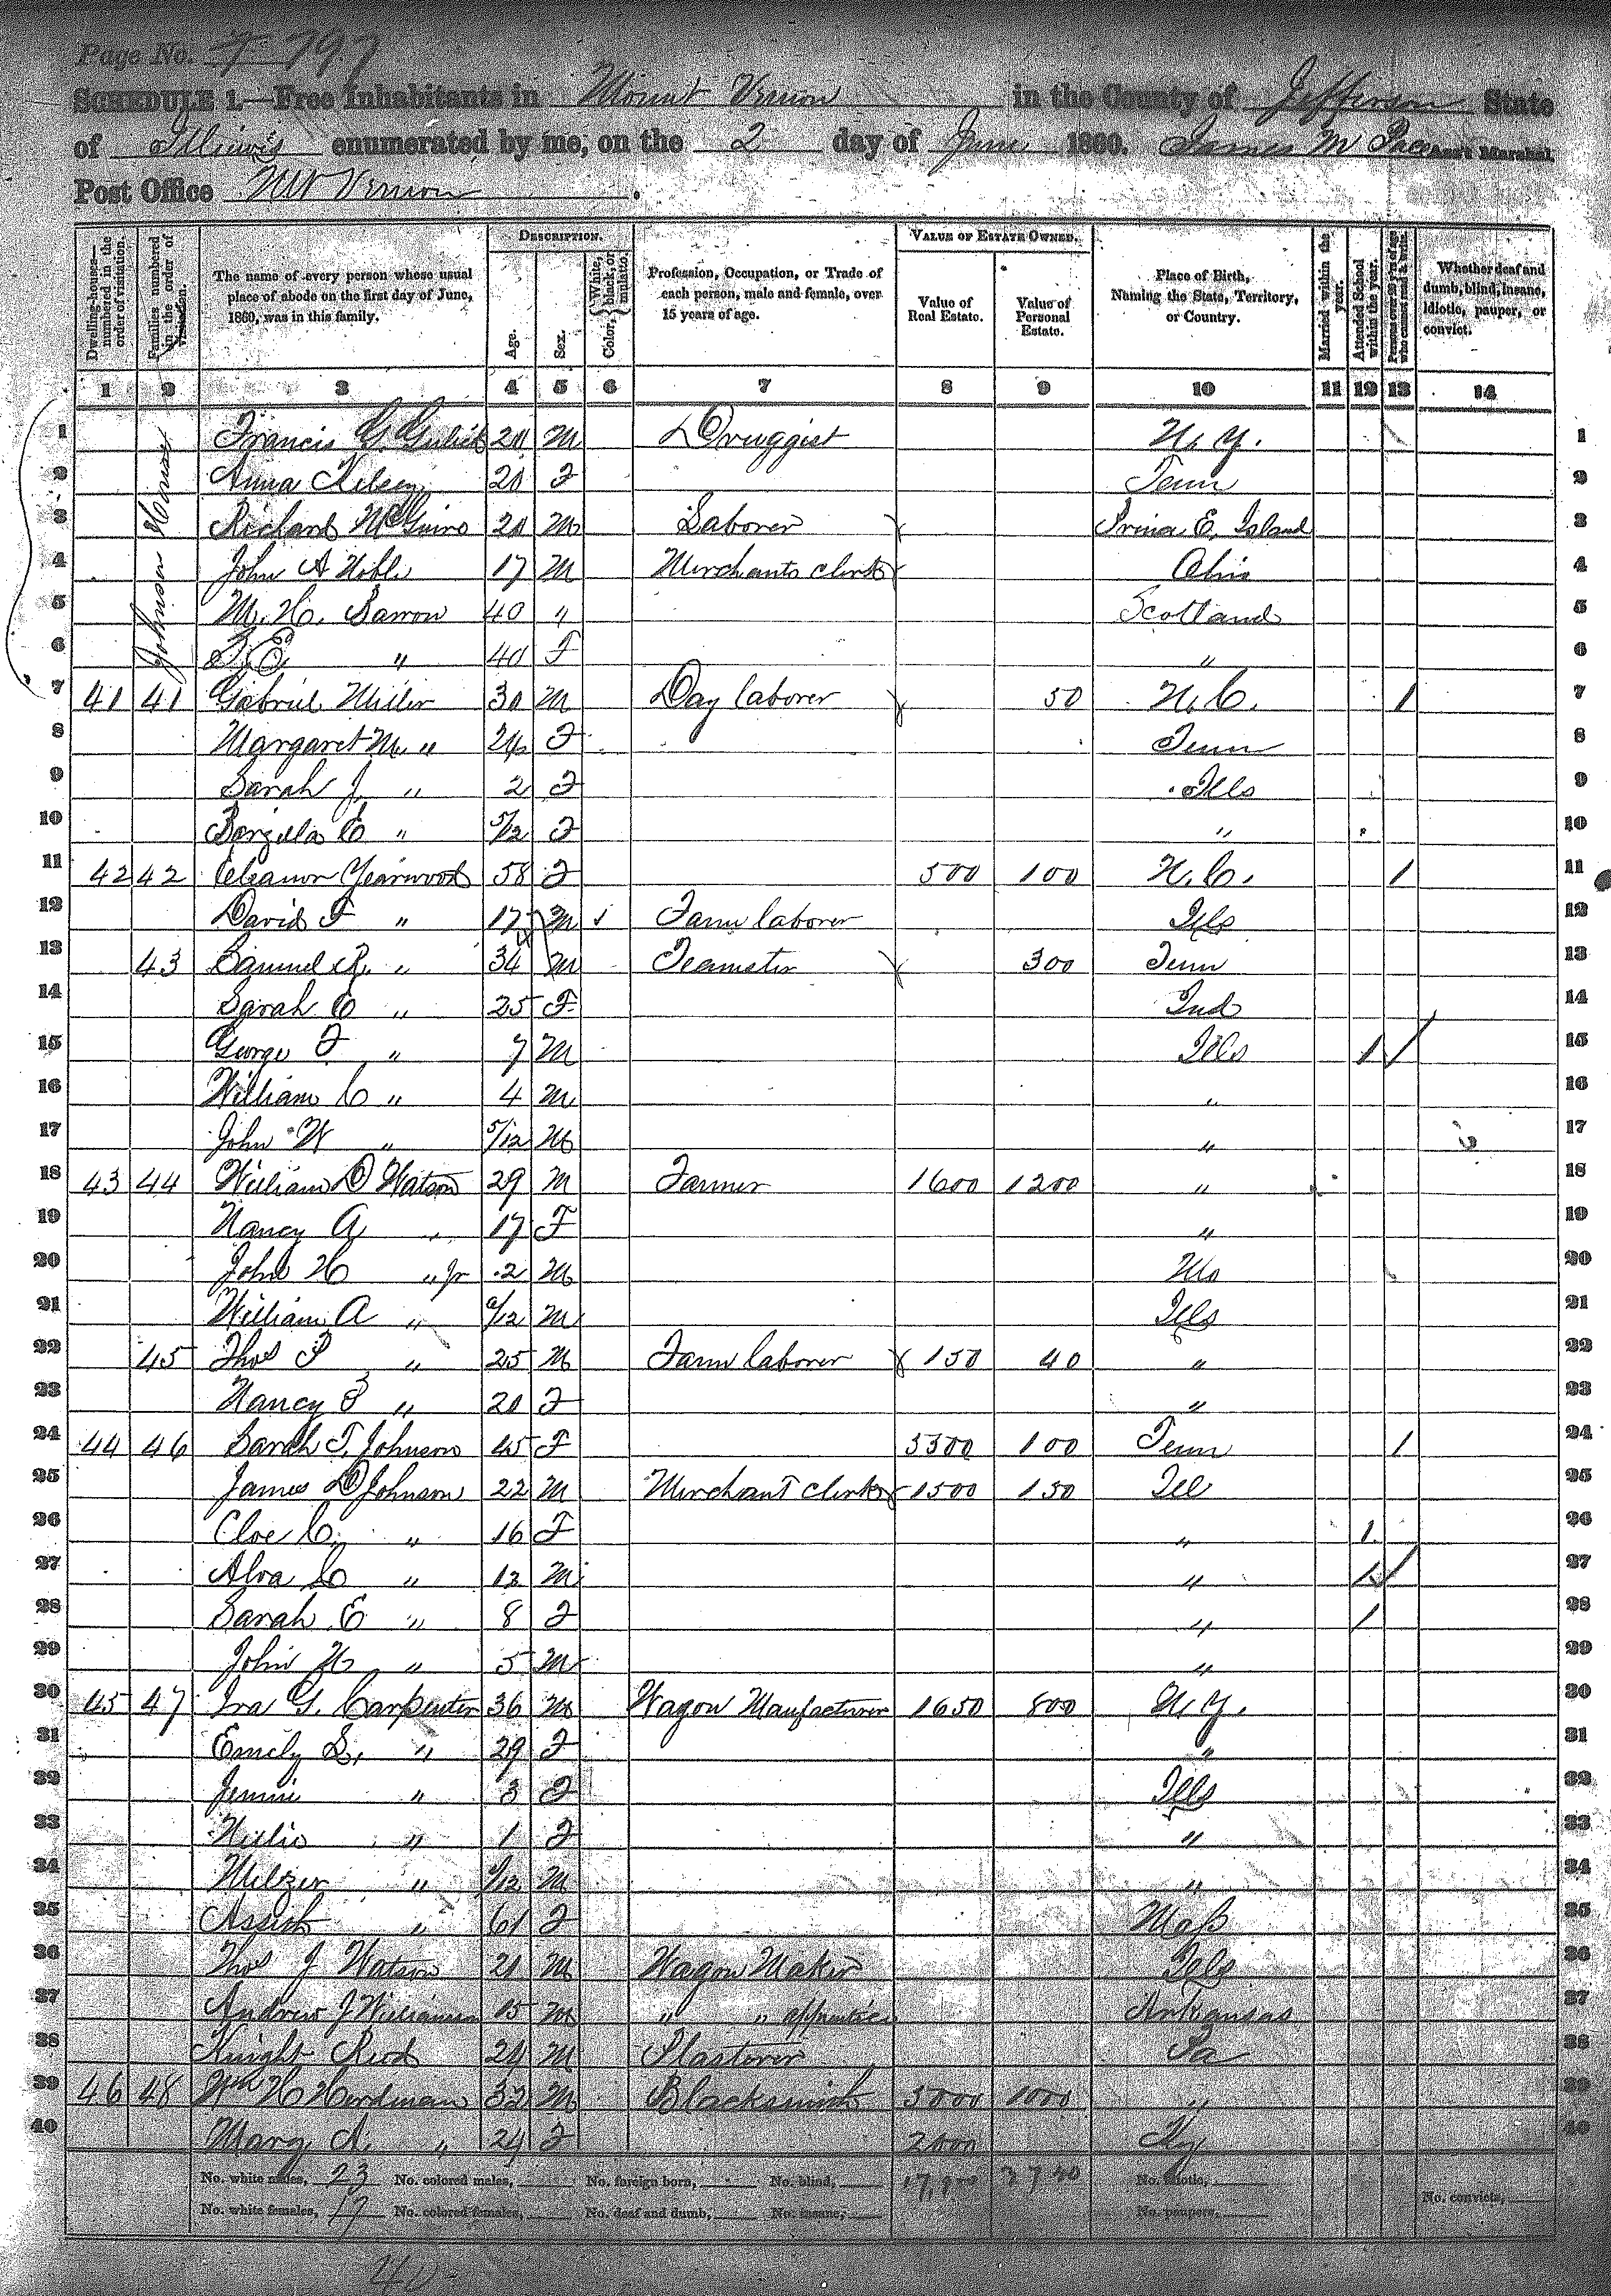 Page No. 7 797
SCHEDULE 1.—Free Inhabitants in Mount Vernon in the County of Jefferson State
of Illinois enumerated by me, on the 2 day of June 1860. James M Pace Ass't Marshal.
Post Office Mt Vernon.
Dwelling-houses— numbered in the order of visitation.
Families numbered in the order of visitation.
The name of every person whose usual place of abode on the first day of June, 1860, was in this family.
DESCRIPTION.
Age.
Sex.
Color, { White, black, or mulatto.
Profession, Occupation, or Trade of each person, male and female, over 15 years of age.
VALUE OF ESTATE OWNED.
Value of Real Estate.
Value of Personal Estate.
Place of Birth, Naming the State, Territory, or Country.
Married within the year.
Attended School within the year.
Persons over 20 y'rs of age who cannot read & write.
Whether deaf and dumb, blind, insane, idiotic, pauper, or convict.
1 2 3 4 5 6 7 8 9 10 11 12 13 14
Johnson House
1 Francis G. Gulick 20 M Druggist N. Y. 1
2 Anna 20 F Tenn 2
3 Richard McGuire 20 M Laborer Prince E. Island 3
4 John A Noble 17 M Merchants clerk Ohio 4
5 M. H. 40 " Scotland 5
6 S. E. " 40 F " 6
7 41 41 Gabriel Miller 30 M Day laborer 50 N. C. 1 7
8 Margaret M. " 24 F Tenn 8
9 Sarah J. " 2 F Ills 9
10 E " 5/12 F " 10
11 42 42 Eleanor Yearwood 58 F 500 100 N. C. 1 11
12 David F " 17 M Farm laborer Ills 12
13 43 Samuel R. " 34 M Teamster 300 Tenn 13
14 Sarah C " 25 F Ind 14
15 George F " 7 M Ills 1 / 15
16 William C " 4 M " 16
17 John W " 5/12 M " 17
18 43 44 William D Watson 29 M Farmer 1600 1200 " 18
19 Nancy A " 17 F " 19
20 John H " Jr 2 M Mo 20
21 William A " /12 M Ills 21
22 45 Thos P " 25 M Farm laborer 150 40 " 22
23 Nancy " 20 F " 23
24 44 46 Sarah T. Johnson 45 F 3300 100 Tenn 1 24
25 James D Johnson 22 M Merchant clerk 1500 150 Ill 25
26 Cloe C. " 16 F " 1 26
27 Alva C " 12 M " 1 / 27
28 Sarah E " 8 F " 1 28
29 John H " 5 M " 29
30 45 47 Ira G. Carpenter 36 M Wagon Manufacturer 1650 800 N. Y. 30
31 Emily S. " 29 F " 31
32 Jennie " 3 F Ills 32
33 " 1 F " 33
34 " /12 M " 34
35 " 61 F Mass 35
36 Thos J Watson 21 M Wagon Maker Ills 36
37 Andrew J Williamson 15 M " " apprentice Arkansas 37
38 Knight Reed 24 M Plasterer Pa 38
39 46 48 Wm H Herdman 32 M Blacksmith 5000 1000 " 39
40 Mary A. " 24 F 2000 Ky 40
No. white males, 23 No. colored males, No. foreign born, No. blind, No. idiotic,
No. white females, 17 No. colored females, No. deaf and dumb, No. insane, No. paupers, No. convicts,
40